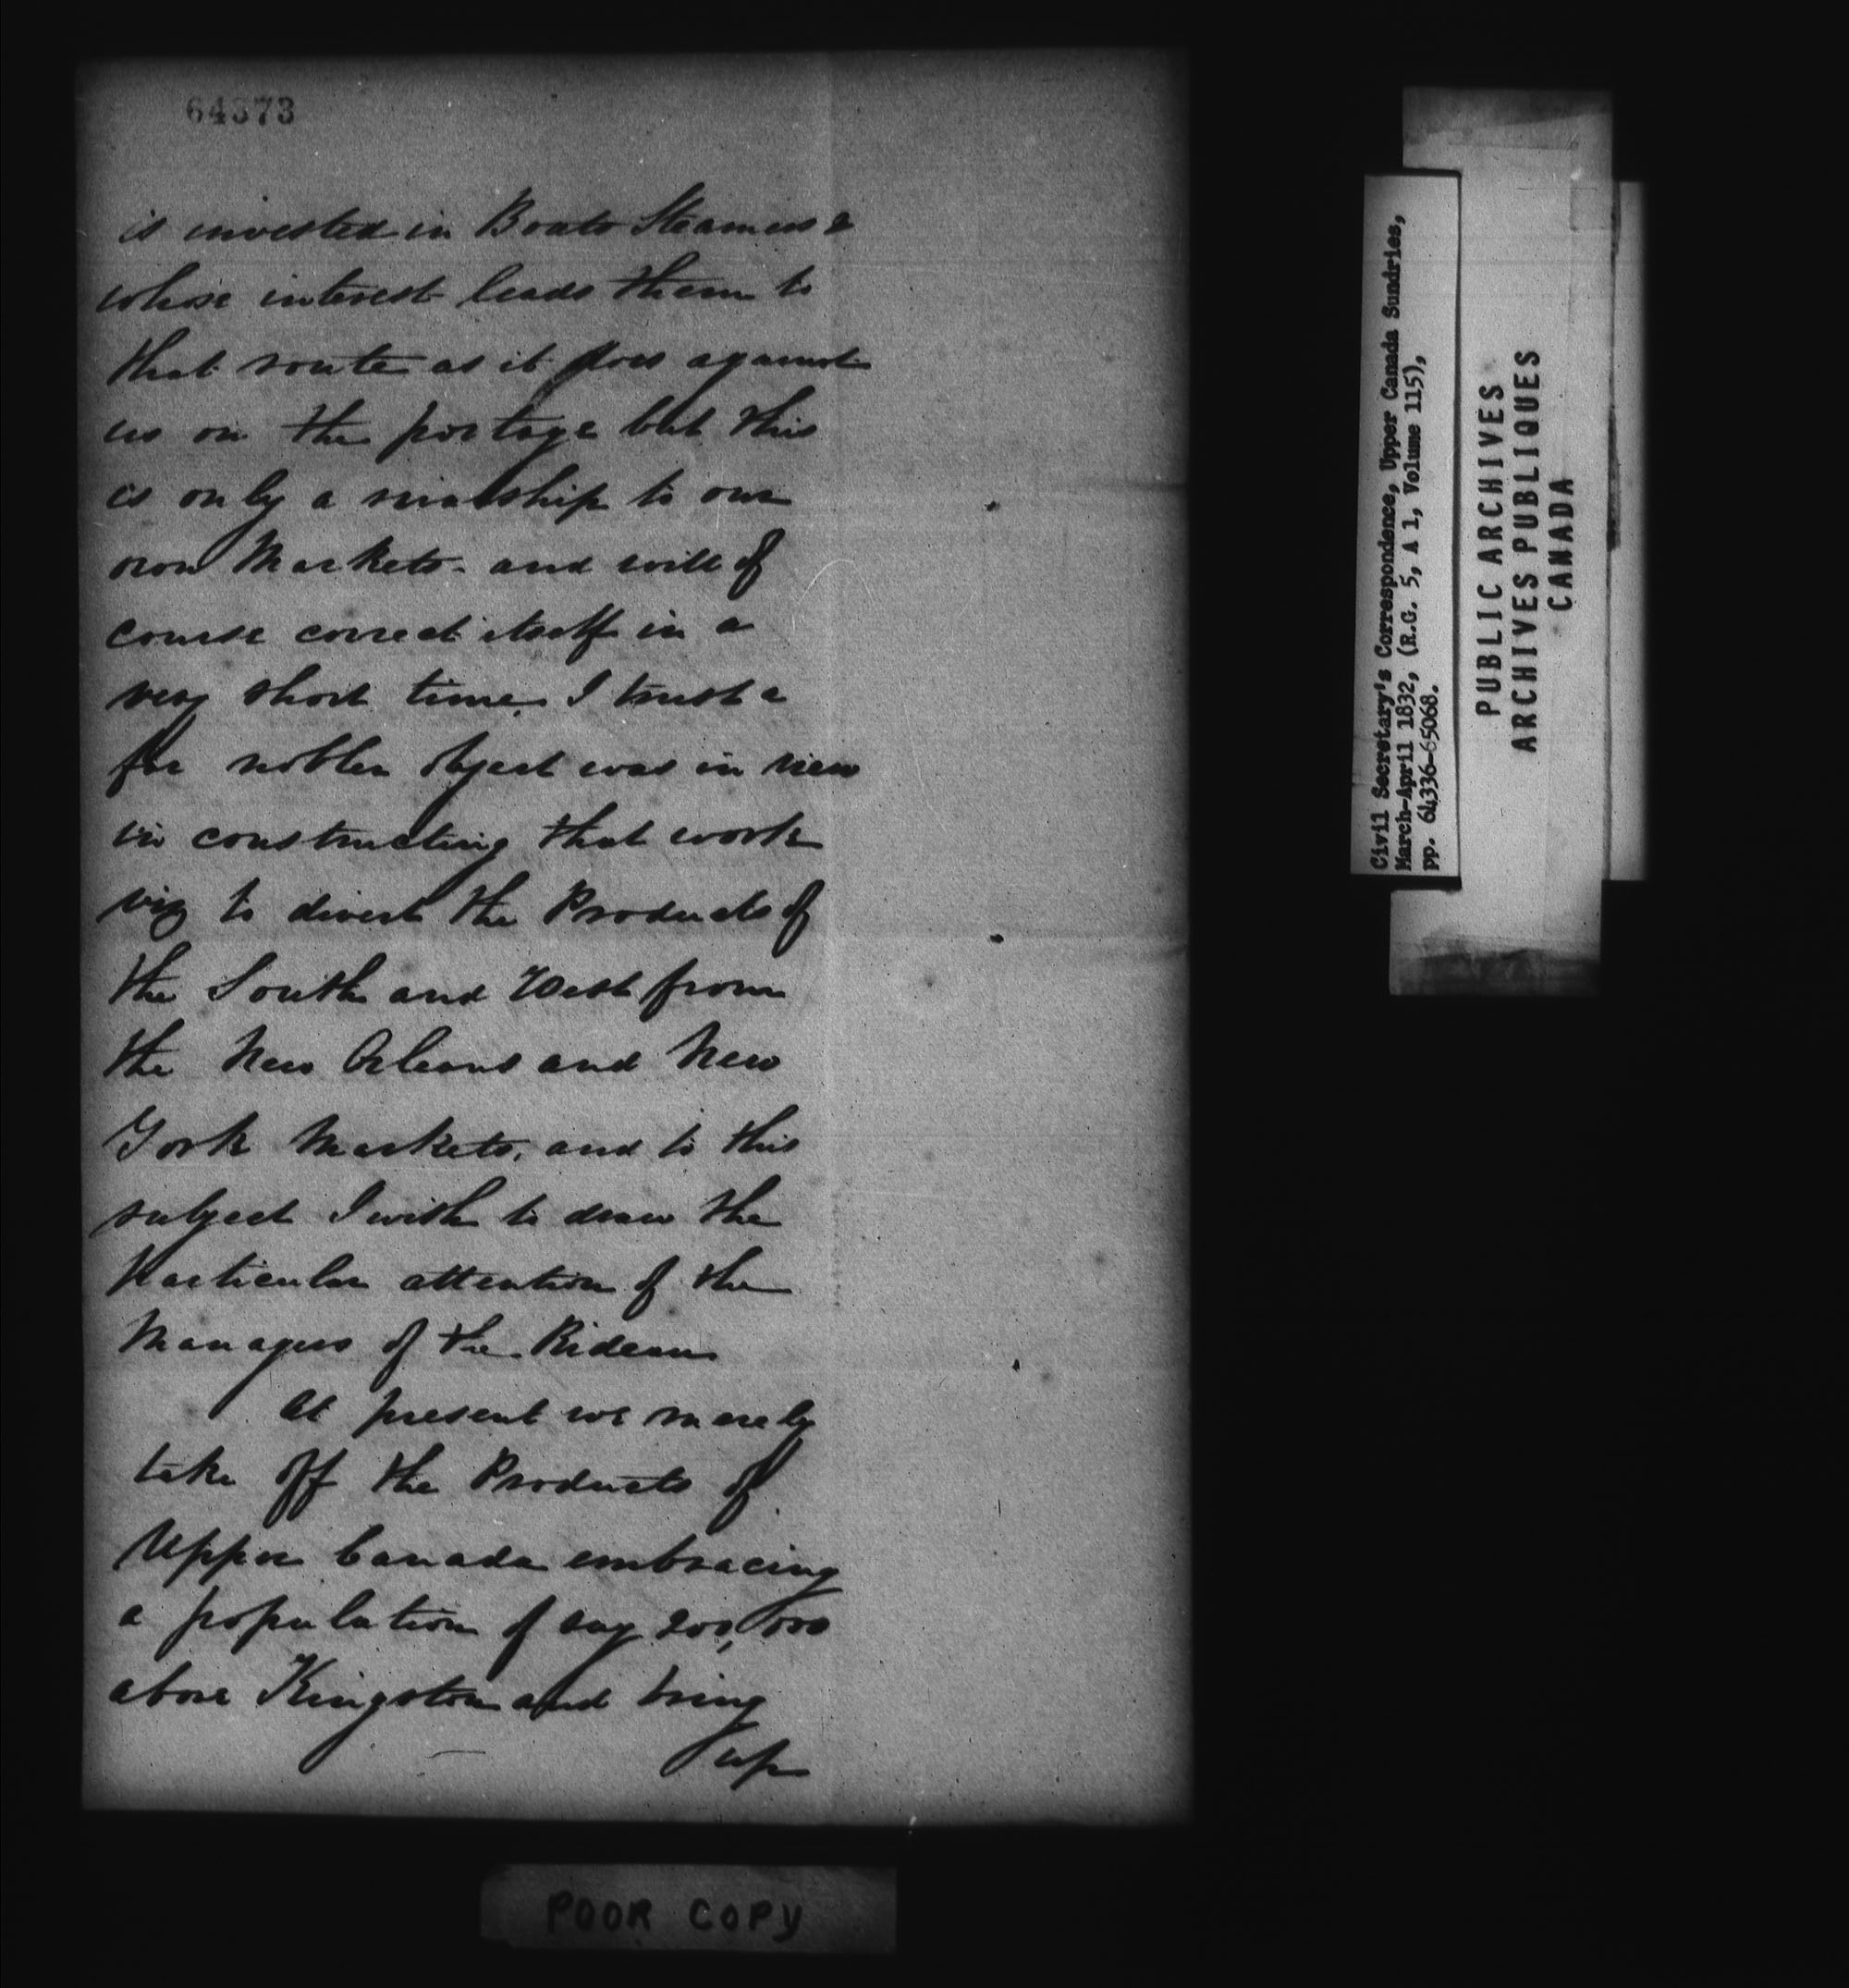 64373
is invested in Boats Steamers &
whose interest leads them to
that route as it does against
us on the portage but this
is only a rivalship to our
own Markets. and will of
course correct itself in a
very short time. I trust a
far nobler object was in view
in constructing that work
viz to divert the Products of
the South and West from
the New Orleans and New
York Markets, and to this
subject I wish to draw the
Particular attention of the
Managers of the Rideau
At present we merely
take off the Products of
Upper Canada embracing
a population of say 200,000
above Kingston and bring
up
POOR COPY
Civil Secretary's Correspondence, Upper Canada Sundries,
March-April 1832, (R.G. 5, A 1, Volume 115),
pp. 64336-65068.
PUBLIC ARCHIVES
ARCHIVES PUBLIQUES
CANADA